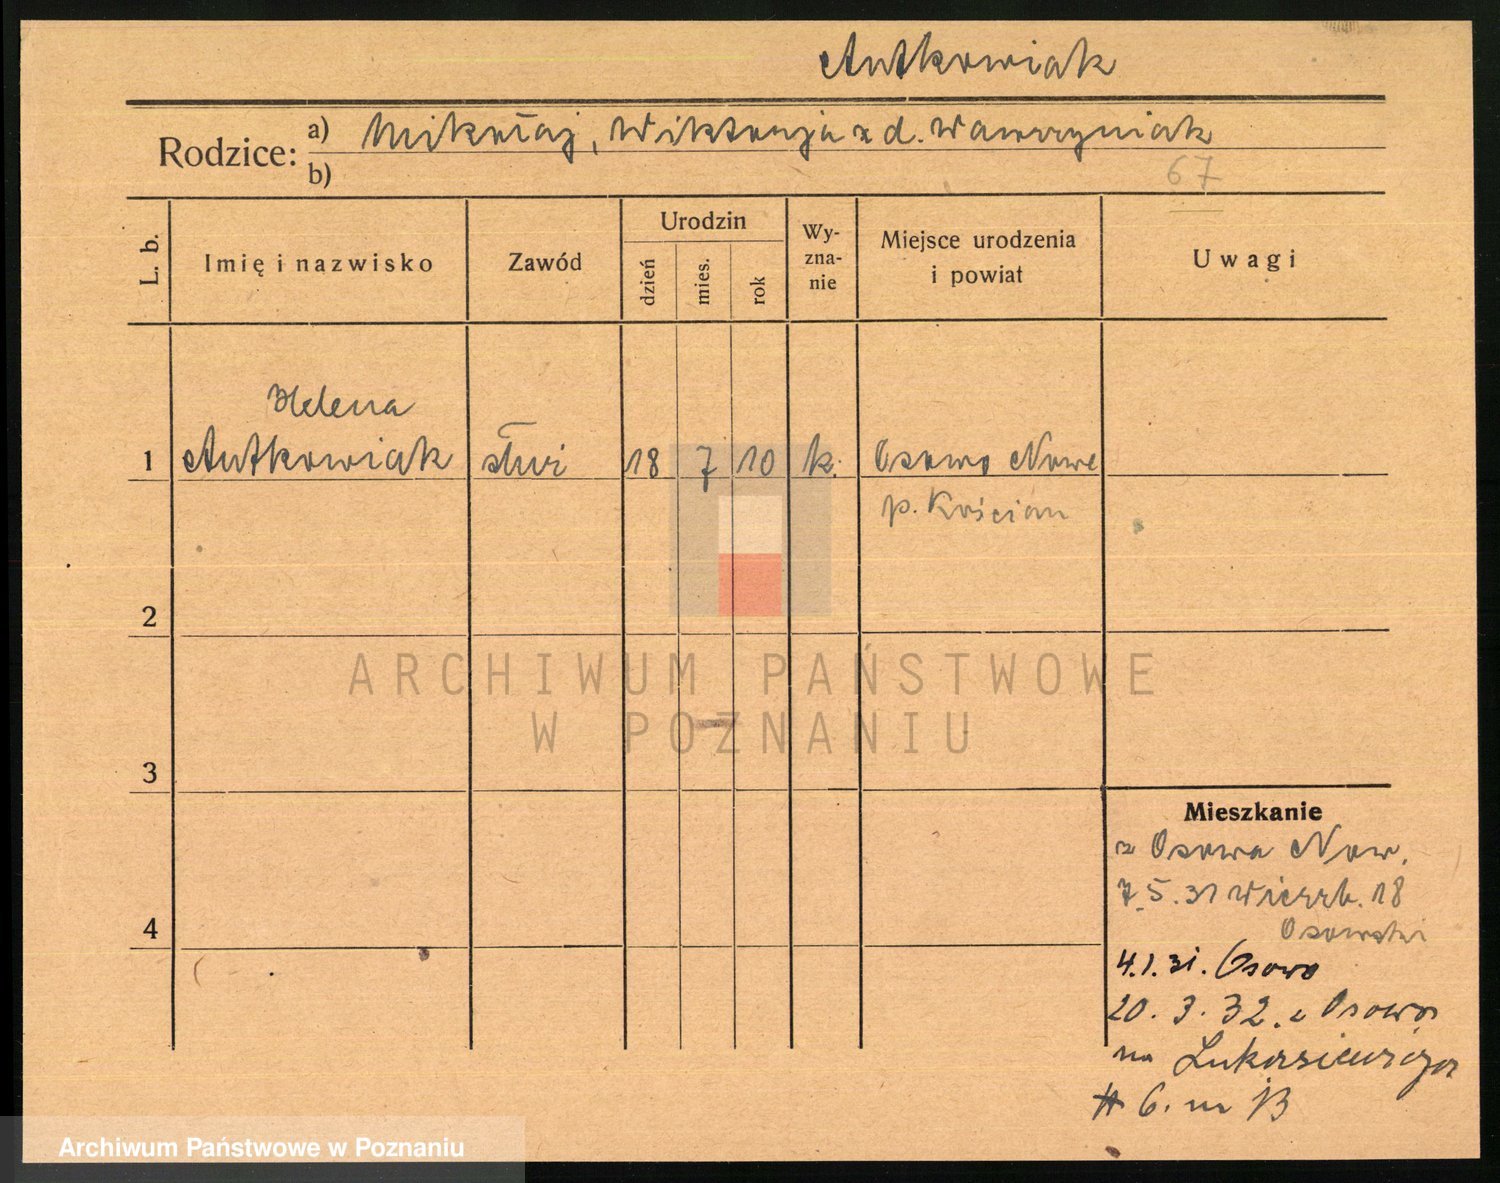 Antkowiak
Rodzice: a) Mikołaj, Wiktorya z d. Wawrzyniak
b)
67
L. b.
Imię i nazwisko
Zawód
Urodzin
dzień
mies.
rok
Wy-
zna-
nie
Miejsce urodzenia
i powiat
Uwagi
Helena
1 Antkowiak służ 18 7 10 k. Osowo Nowe
p. Kościan
2
ARCHIWUM PAŃSTWOWE
W POZNANIU
3
Mieszkanie
z Osowa Now.
7.5.31 Wierzb. 18
4
4.1.31. Osowo
20. 3. 32. z Osowo
na Łukasiewicza
6. m 13
Archiwum Państwowe w Poznaniu